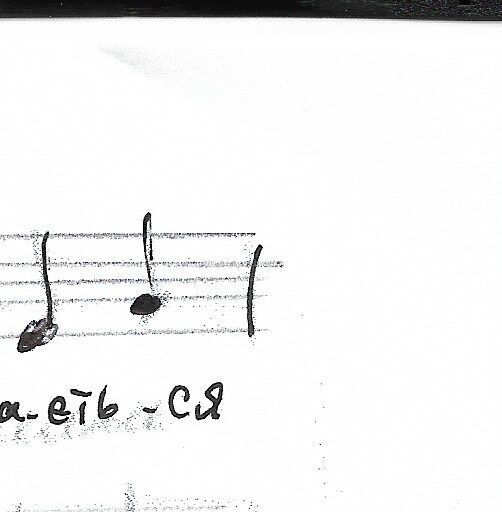 а-еть-ся